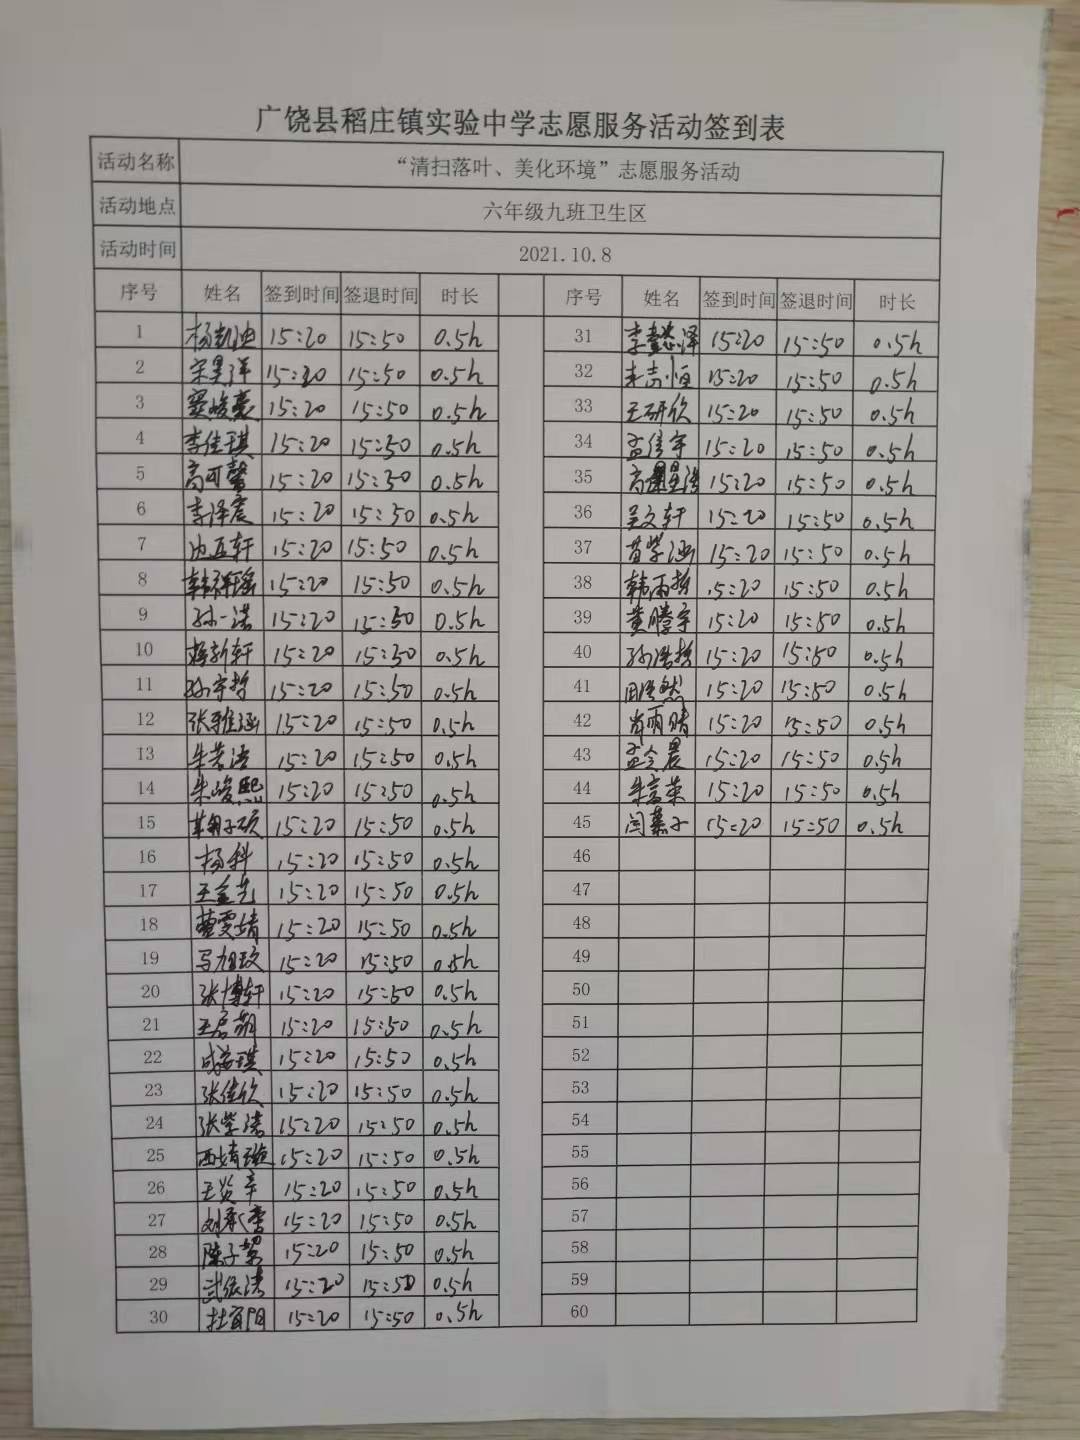 广饶县稻庄镇实验中学志愿服务活动签到表
活动名称 “清扫落叶、美化环境”志愿服务活动
活动地点 六年级九班卫生区
活动时间 2021.10.8
序号 姓名 签到时间 签退时间 时长 序号 姓名 签到时间 签退时间 时长
1 杨凯迪 15:20 15:50 0.5h 31 李懿泽 15:20 15:50 0.5h
2 宋昊洋 15:20 15:50 0.5h 32 朱志恒 15:20 15:50 0.5h
3 窦峻豪 15:20 15:50 0.5h 33 王研欣 15:20 15:50 0.5h
4 李佳琪 15:20 15:50 0.5h 34 孟佳宇 15:20 15:50 0.5h
5 高可馨 15:20 15:50 0.5h 35 15:20 15:50 0.5h
6 李泽宸 15:20 15:50 0.5h 36 吴文轩 15:20 15:50 0.5h
7 15:20 15:50 0.5h 37 苗紫涵 15:20 15:50 0.5h
8 15:20 15:50 0.5h 38 韩雨哲 15:20 15:50 0.5h
9 孙一诺 15:20 15:50 0.5h 39 黄腾宇 15:20 15:50 0.5h
10 蒋新轩 15:20 15:50 0.5h 40 孙浩哲 15:20 15:50 0.5h
11 孙宇哲 15:20 15:50 0.5h 41 周浩然 15:20 15:50 0.5h
12 张雅涵 15:20 15:50 0.5h 42 肖雨晴 15:20 15:50 0.5h
13 朱若洁 15:20 15:50 0.5h 43 孟令晨 15:20 15:50 0.5h
14 朱峻熙 15:20 15:50 0.5h 44 朱宣荣 15:20 15:50 0.5h
15 韩子硕 15:20 15:50 0.5h 45 闫慕子 15:20 15:50 0.5h
16 杨科 15:20 15:50 0.5h 46
17 王金艺 15:20 15:50 0.5h 47
18 15:20 15:50 0.5h 48
19 马旭玟 15:20 15:50 0.5h 49
20 张博轩 15:20 15:50 0.5h 50
21 王启萌 15:20 15:50 0.5h 51
22 15:20 15:50 0.5h 52
23 张佳欣 15:20 15:50 0.5h 53
24 张紫涵 15:20 15:50 0.5h 54
25 西婧璇 15:20 15:50 0.5h 55
26 15:20 15:50 0.5h 56
27 15:20 15:50 0.5h 57
28 陈子絮 15:20 15:50 0.5h 58
29 武依涛 15:20 15:50 0.5h 59
30 杜宜阳 15:20 15:50 0.5h 60